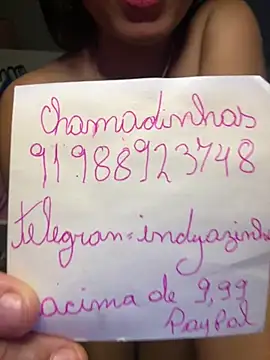 chamadinhas
91 988923748
telegran = indyazinha
acima de 9,99
PayPal